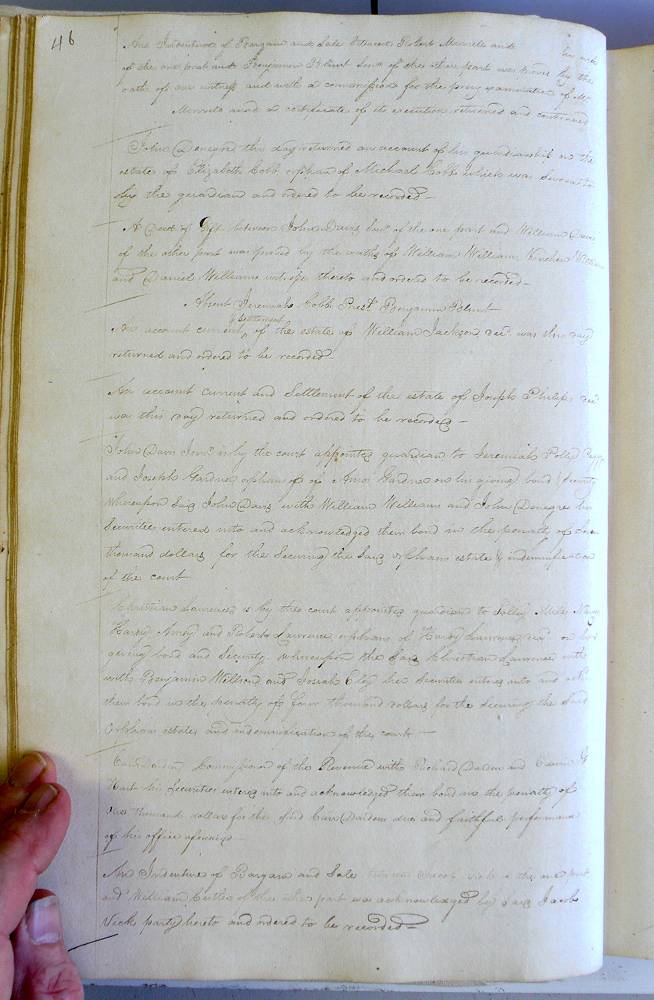 46
An Indenture of Bargain and Sale between Robert Murrell and
of the one part and Benjamin Blunt Senr of the other part was proved by the
oath of one witness and with a commission for the privy examination of Mrs
Murrell and a certificate of its execution returned and continued
John Denegre this day returned an account of his guardianship on the
estate of Elizabeth Cobb orphan of Michael Cobb which was sworn to
by the guardian and ordered to be recorded
A Deed of Gift between John Davis Senr of the one part and William Davis
of the other part was proved by the oaths of William Williams, Kinchen Williams
and Daniel Williams witnesses thereto and ordered to be recorded
Absent Jeremiah Cobb Prest Benjamin Blunt
& Settlement
An account current of the estate of William Jackson decd was this day
returned and ordered to be recorded
An account current and Settlement of the estate of Joseph Philips decd
was this day returned and ordered to be recorded
John Davis Senr is by the court appointed guardian to Jeremiah Polly
and Joseph Gardner orphans of Amos Gardner on his giving bond & Security
whereupon Said John Davis with William Williams and John Denegre his
Securities entered into and acknowledged their bond in the penalty of one
thousand dollars for the Securing the Said orphans estate & indemnification
of the court
Christian Lawrence is by the court appointed guardian to Salley Miles
Hardy and Roberts Lawrence orphans of Hardy Lawrence decd on her
giving bond and Security whereupon the Said Christian Lawrence with
with Benjamin Willson and Josiah Eley her Securities entered into and
their bond in the penalty of four thousand dollars for the securing the Said
Orphans estates and indemnification of the court
Commissioner of the Revenue with Richard Darden and Edwin
Hart his Securities entered into and acknowledged their bond in the penalty of
thousand dollars for the Said Carr Darden due and faithful performance
of his office aforesaid
An Indenture of Bargain and Sale between Jacob Vick of the one part
and William of the other part was acknowledged by Said Jacob
Vick party hereto and ordered to be recorded